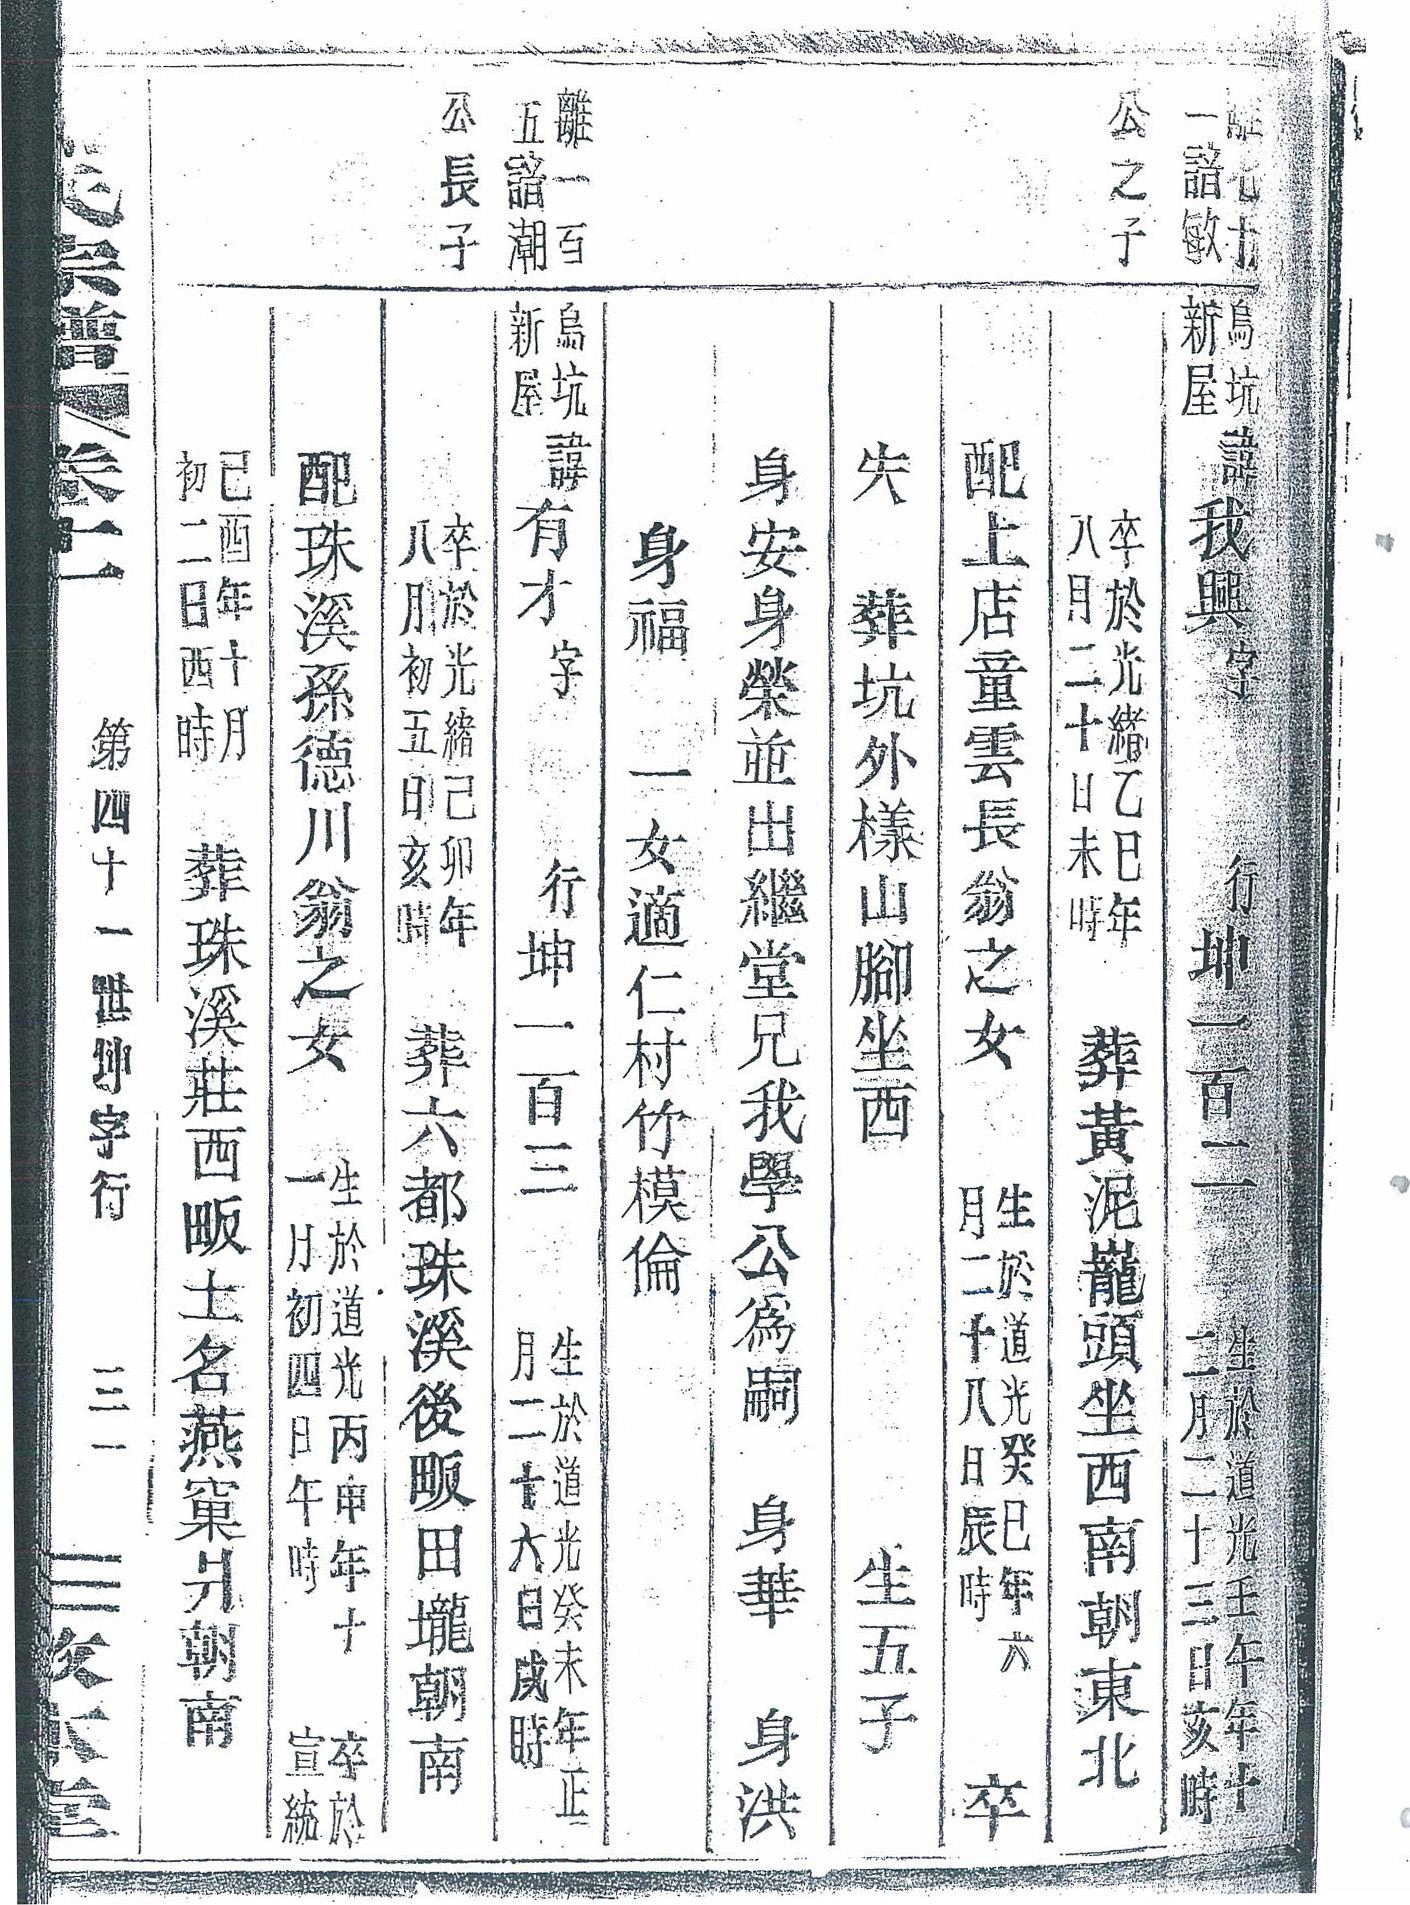 離七十
一諳敏
公之子
烏坑
新屋
諱我興字 行坤一百二
生於道光壬午年十
二月二十三日亥時
卒於光緒乙巳年
八月二十日未時
葬黃泥巃頭坐西南朝東北
配上店童雲長翁之女
生於道光癸巳年六
月二十八日辰時
卒
失 葬坑外樣山腳坐西 生五子
身安身榮並出繼堂兄我學公為嗣 身華 身洪
身福 一女適仁村竹模倫
離一百
五諳潮
公長子
烏坑
新屋
諱有才字 行坤一百三
生於道光癸未年正
月二十六日戌時
卒於光緒己卯年
八月初五日亥時
葬六都珠溪後畈田壠朝南
配珠溪孫德川翁之女
生於道光丙申年十
一月初四日午時
卒於
宣統
己酉年十月
初二日酉時
葬珠溪莊西畈土名燕窠爿朝南
氏宗譜 卷十一
第四十一世坤字行 三一
敦本堂